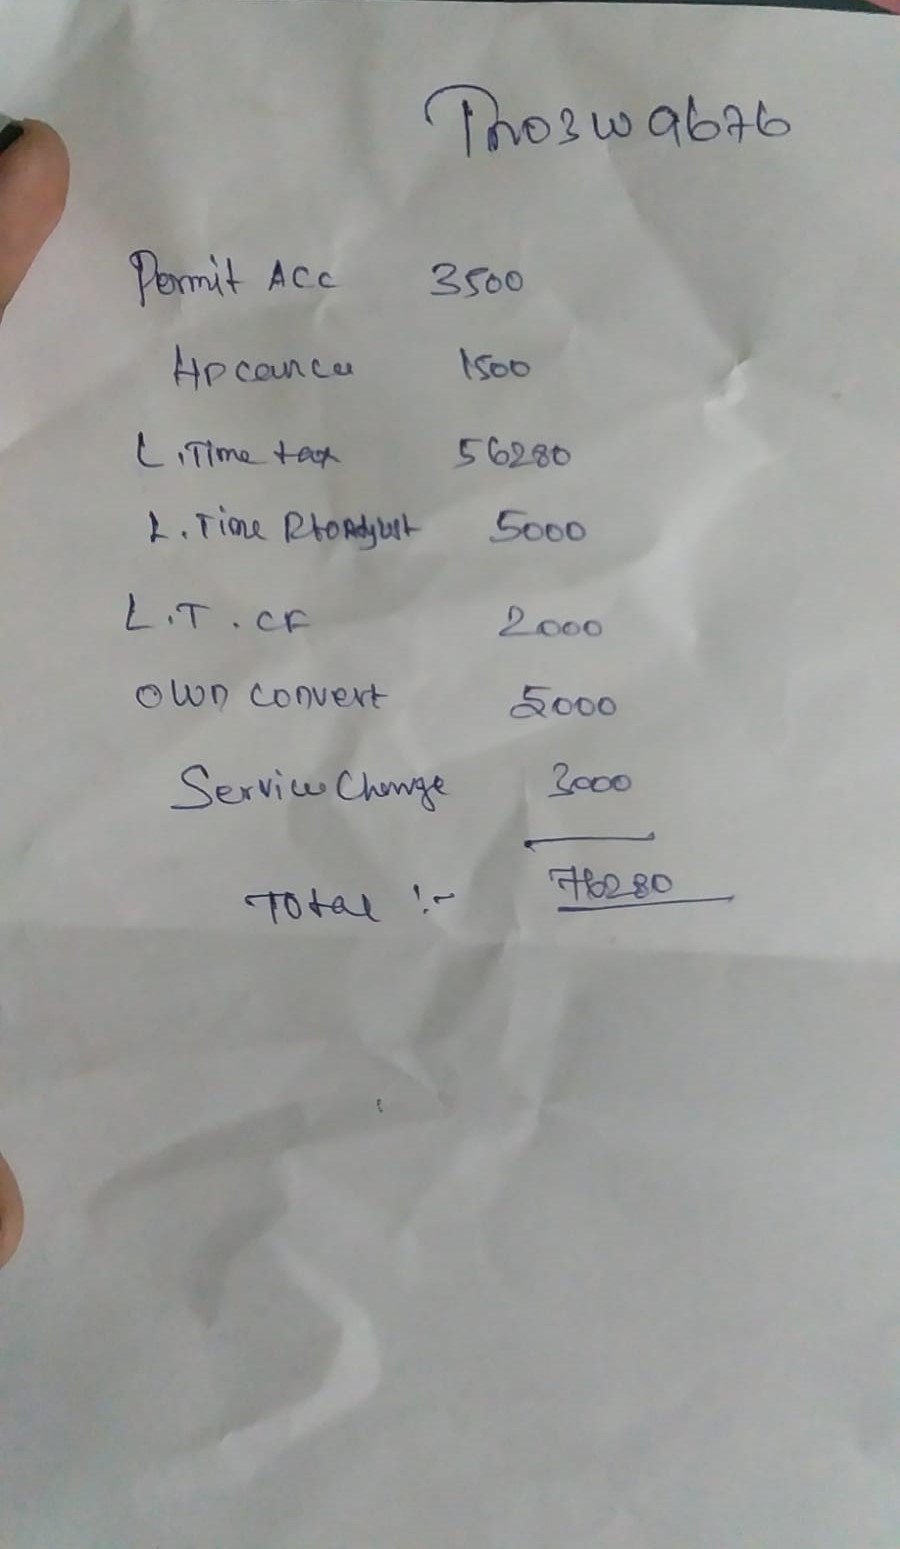 TN03W9676
Permit ACC 3500
HP cancel 1500
L.Time tax 56280
L.Time RtoAdjust 5000
L.T. CF 2000
OWN Convert 5000
Service Charge 3000
Total :- 76280